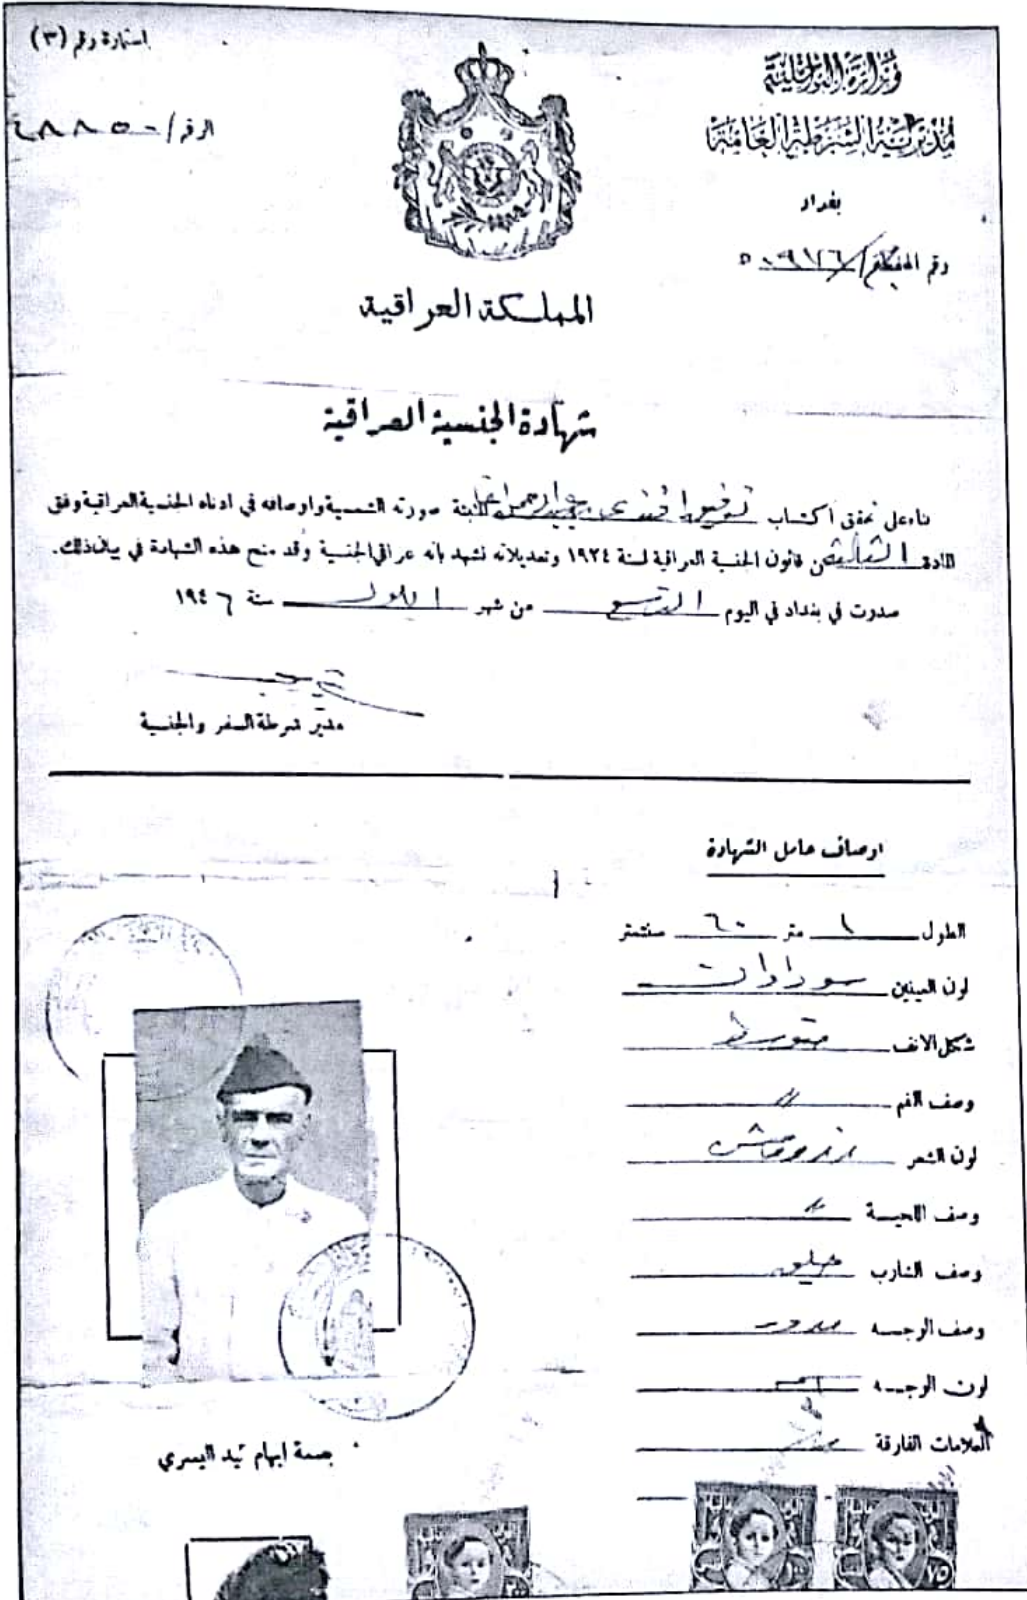 استمارة رقم (٣)
وزارة الداخلية
الرقم/ ٤٨٨٥٠
مديرية الشرطة العامة
بغداد
رقم المحفظة/
المملكة العراقية
شهادة الجنسية العراقية
بناء على تحقق اكتساب توفيق افندي صورته الشمسية واوصافه في ادناه الجنسية العراقية وفق
المادة الثالثة من قانون الجنسية العراقية لسنة ١٩٢٤ وتعديلاته نشهد بانه عراقي الجنسية وقد منح هذه الشهادة في بيان ذلك.
صدرت في بغداد في اليوم التاسع من شهر ايلول سنة ١٩٤٦
مدير شرطة السفر والجنسية
اوصاف حامل الشهادة
الطول ١ متر ٦٠ سنتمتر
لون العينين سوداوان
شكل الانف متوسط
وصف الفم 〃
لون الشعر
وصف اللحية 〃
وصف الشارب حليق
وصف الوجه مدور
لون الوجه
العلامات الفارقة
بصمة ابهام اليد اليسرى
٧٥